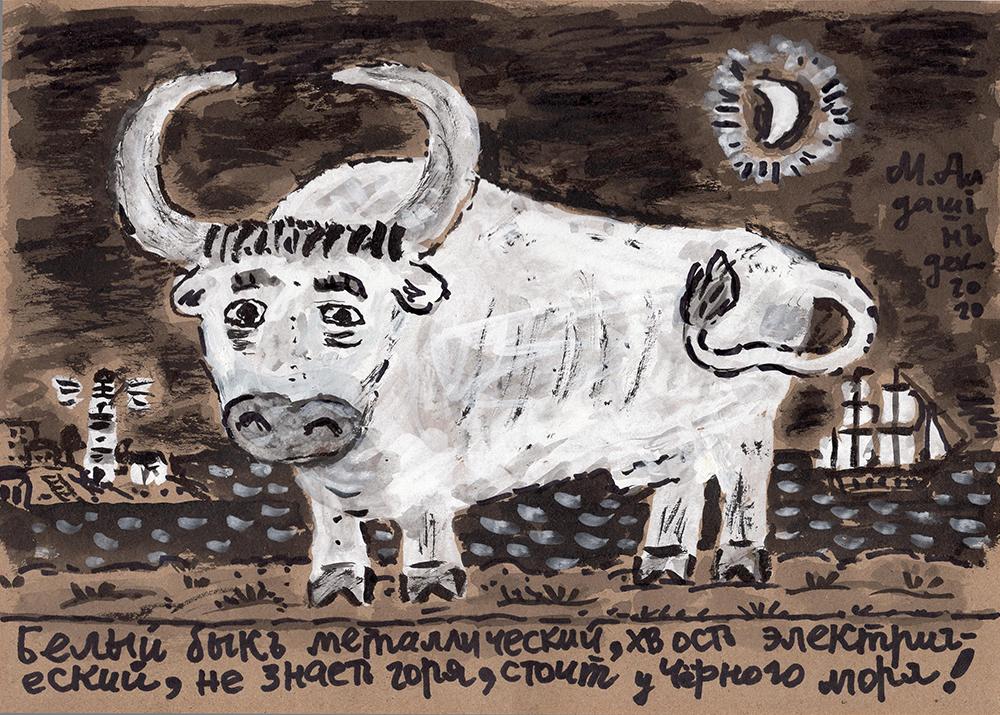 М. Ал
даші
нъ
дек.
20
20
Белый быкъ металлический, хвостъ электрич-
еский, не знаетъ горя, стоит у Чёрного моря!